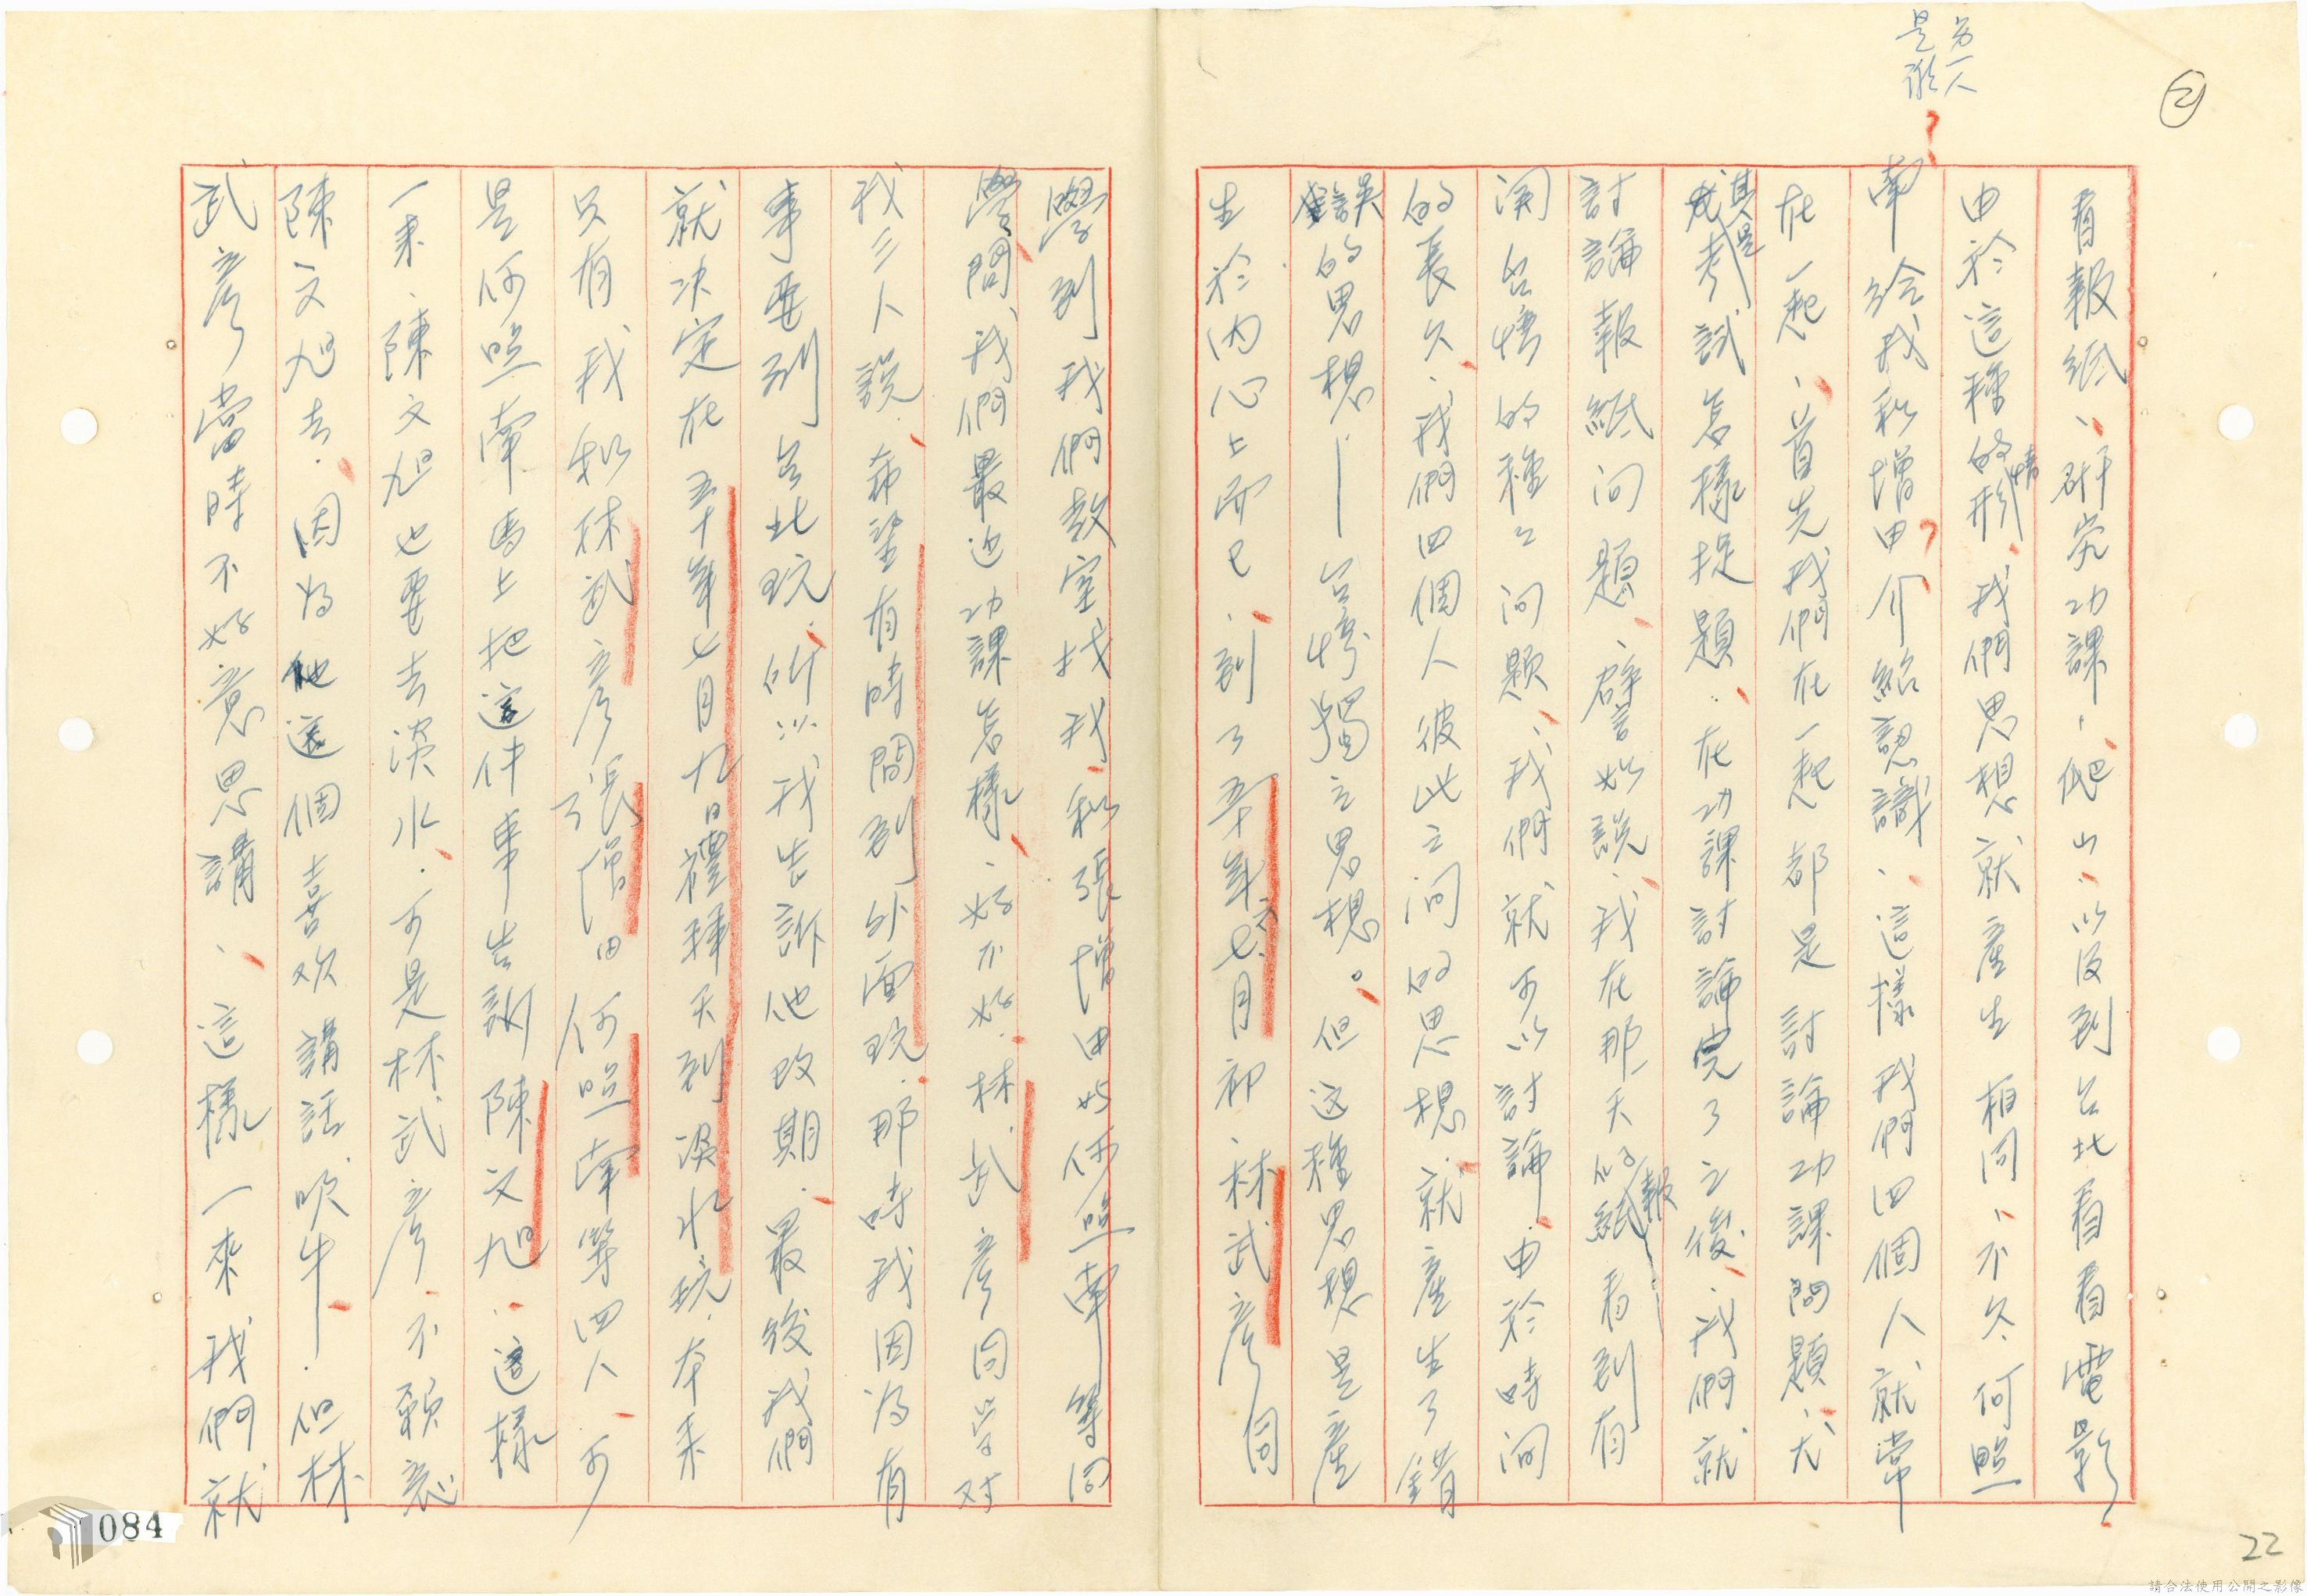 另一人
是誰
?
②
看報紙、研究功課、爬山、以及到台北看看電影
由於這種的情形、我們思想就產生相同、不久何照
南給我和增田介紹認識、這樣我們四個人就常
在一起、首先我們在一起都是討論功課問題、尤
其是考試怎樣提題、在功課討論完了之後、我們就
討論報紙问題、譬如說、我在那一天的報紙看到有
関台灣的種々问題、我們就可以討論、由於時间
的長久、我們四個人彼此之间的思想、就產生了錯
誤的思想—台灣獨立思想。但这種思想是產
生於內心上而已、到了五十年六月初、林武彥同
學到我們教室找我和張增田如何照南等同
學問、我們最近功課怎樣、好不好、林武彥同学对
我三人說、希望有時間到外面玩、那時我因為有
事要到台北玩、所以我告訴他改期、最後我們
就决定在五十年七月九日禮拜天到淡水玩、本来
只有我和林武彥、張增田、何照南等四人、可
是何照南馬上把這件事告訴陳文旭、這樣
一来、陳文旭也要去淡水、可是林武彥、不願意
陳文旭去、因为他這個喜欢講話吹牛、但林
武彥當時不好意思講、這樣一來我們就
084
22
請合法使用公開之影像